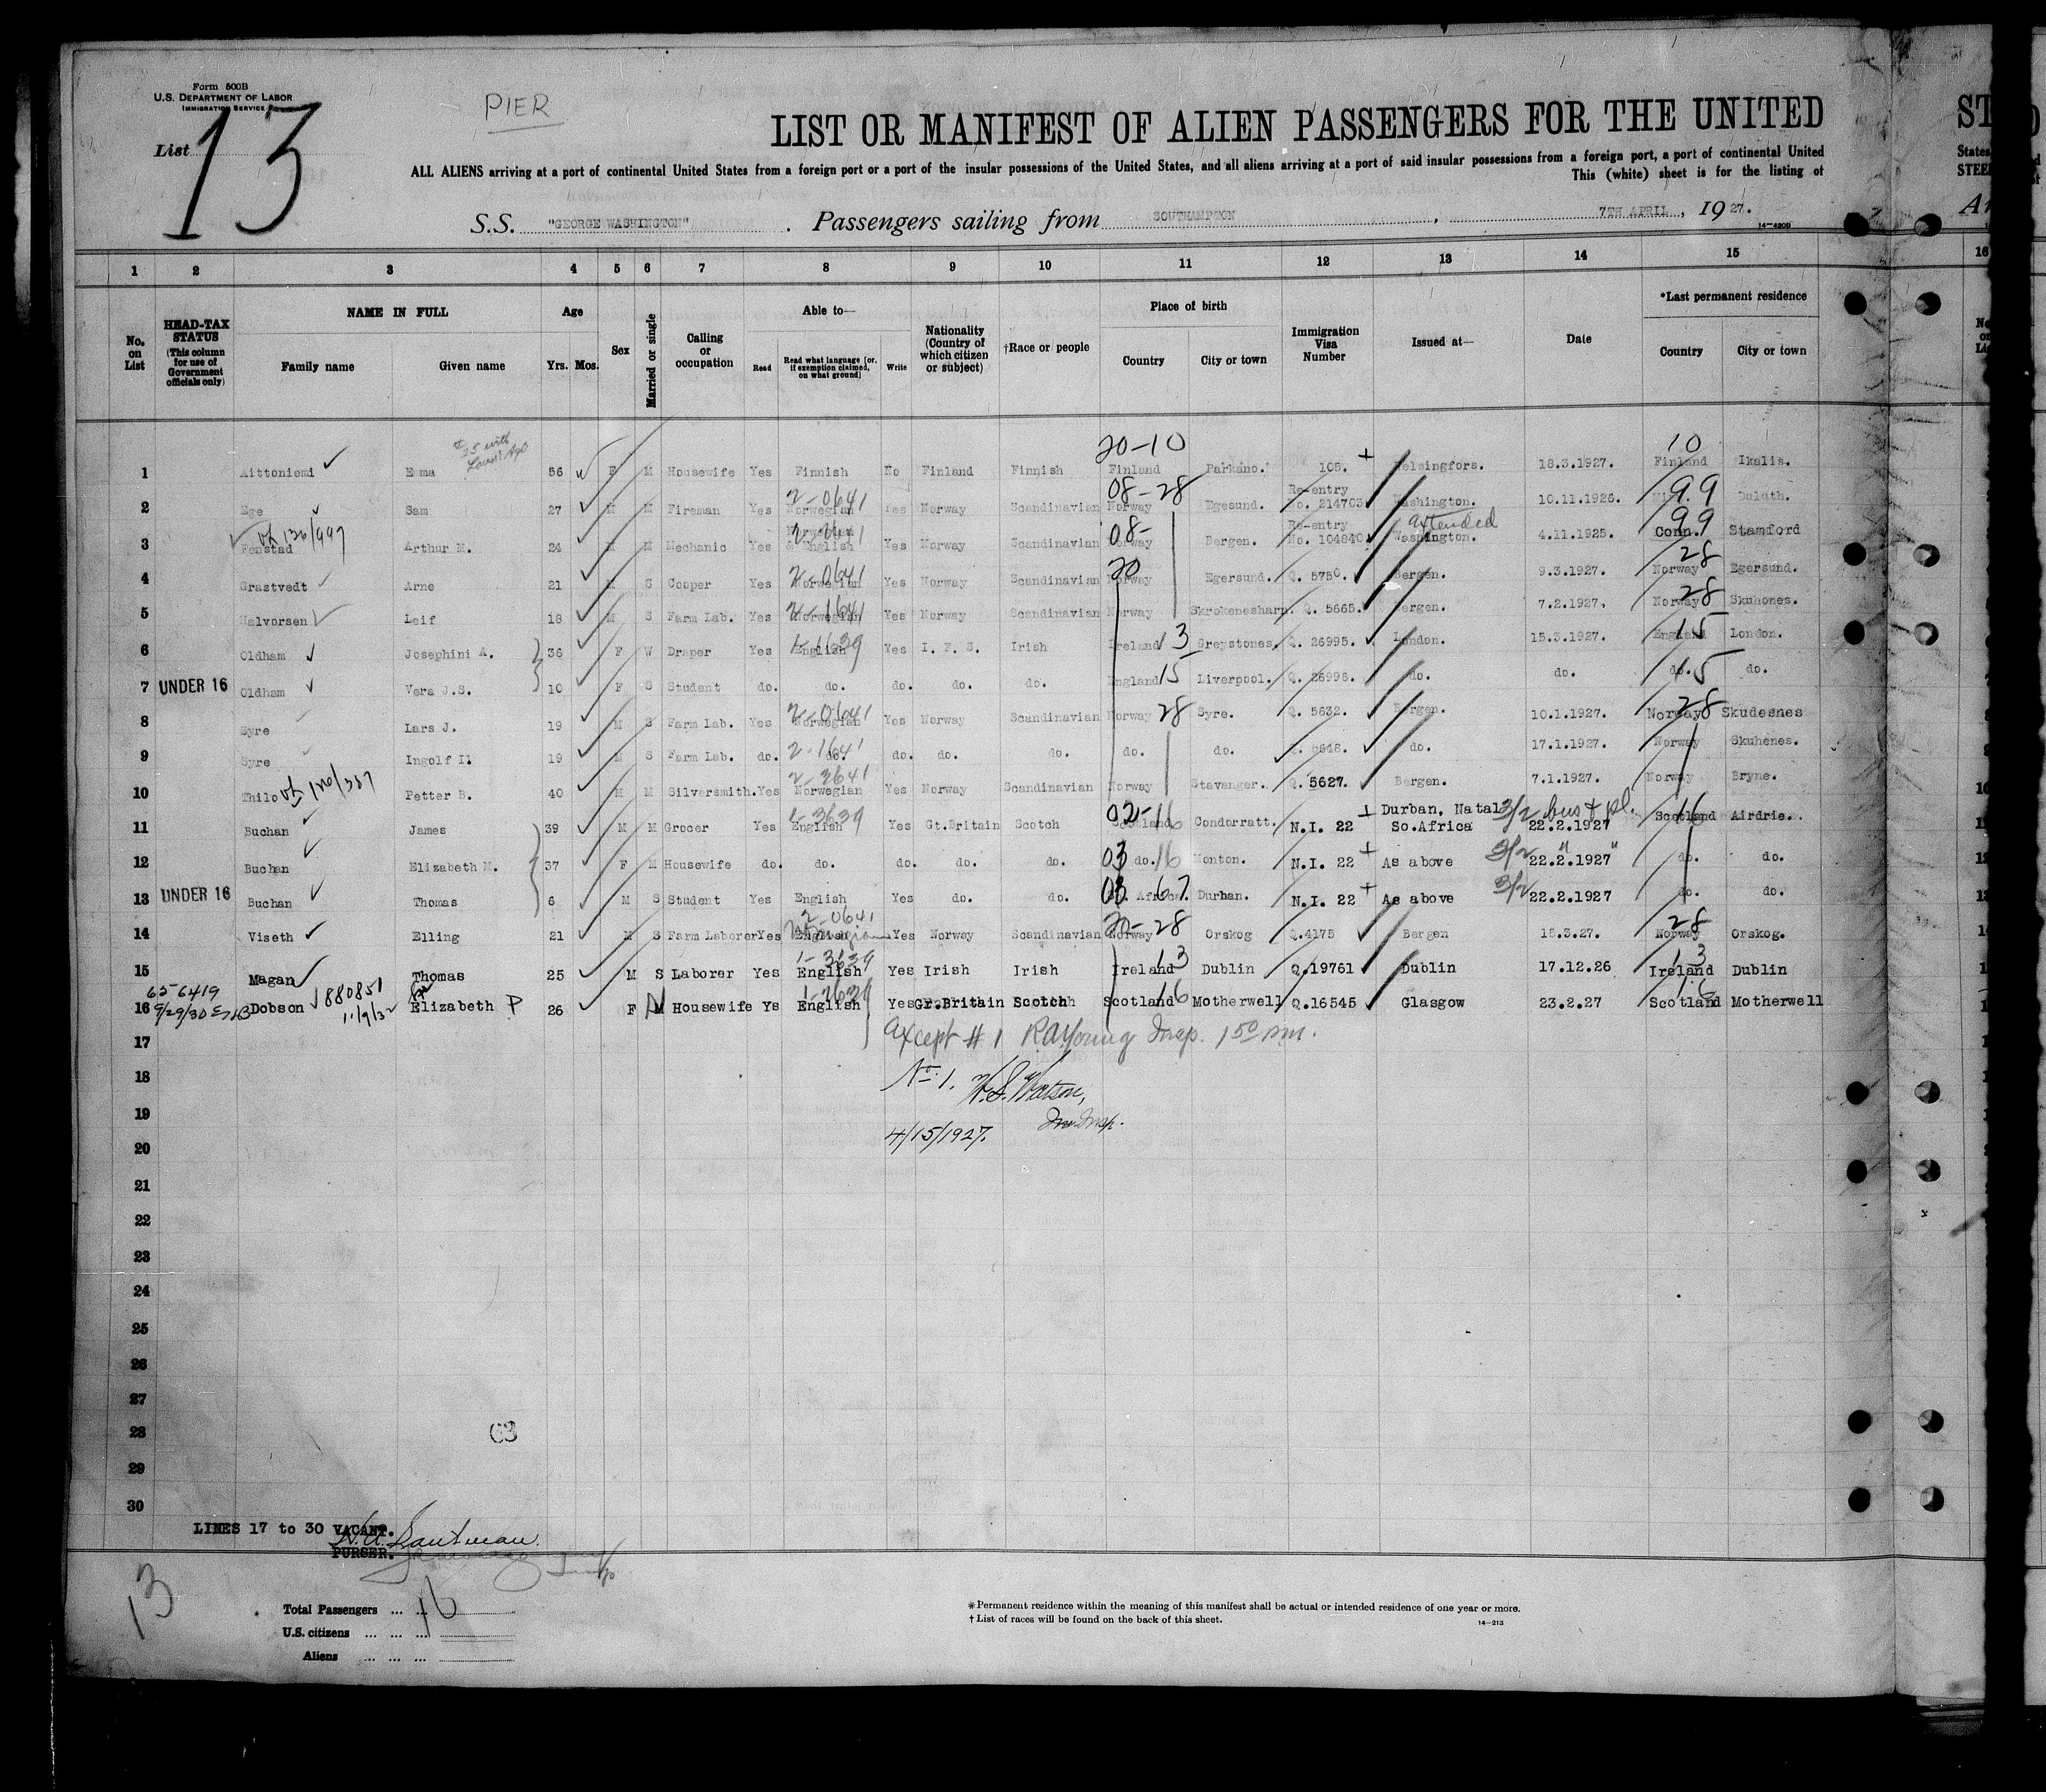 Form 500B
U.S. DEPARTMENT OF LABOR
IMMIGRATION SERVICE
List 13
PIER
LIST OR MANIFEST OF ALIEN PASSENGERS FOR THE UNITED
ST
ALL ALIENS arriving at a port of continental United States from a foreign port or a port of the insular possessions of the United States, and all aliens arriving at a port of said insular possessions from a foreign port, a port of continental United
States
This (white) sheet is for the listing of
STEE
S.S. "GEORGE WASHINGTON". Passengers sailing from SOUTHAMPTON, 7TH APRIL, 1927.
14-4200
1 2 3 4 5 6 7 8 9 10 11 12 13 14 15 16
No. on List
HEAD-TAX STATUS (This column for use of Government officials only)
NAME IN FULL
Family name Given name
Age
Yrs. Mos.
Sex
Married or single
Calling or occupation
Able to—
Read Read what language (or, if exemption claimed, on what ground) Write
Nationality (Country of which citizen or subject)
†Race or people
Place of birth
Country City or town
Immigration Visa Number
Issued at—
Date
*Last permanent residence
Country City or town
20-10 10
1 Aittoniemi Emma 56 F M Housewife Yes Finnish No Finland Finnish Finland Parkano. 105. Helsingfors. 18.3.1927. Finland Ikalis.
2-0641 08-28 Re-entry 99
2 Ege Sam 27 M M Fireman Yes Norwegian Yes Norway Scandinavian Norway Egesund. No. 214703 Washington. 10.11.1926. Duluth.
08- Re-entry extended 99
3 Fonstad Arthur M. 24 M M Mechanic Yes & English Yes Norway Scandinavian Norway Bergen. No. 104840 Washington. 4.11.1925. Conn. Stamford
2-0641 20 28
4 Grastvedt Arne 21 M S Cooper Yes Norwegian Yes Norway Scandinavian Norway Egersund. Q. 5750. Bergen. 9.3.1927. Norway Egersund.
2-1641 28
5 Halvorsen Leif 18 M S Farm Lab. Yes Norwegian Yes Norway Scandinavian Norway Skrokenesharn. Q. 5665. Bergen. 7.2.1927. Norway Skuhones.
1-1639 13 15
6 Oldham Josephini A. 36 F W Draper Yes English Yes I. F. S. Irish Ireland Greystones. Q. 26995. London. 15.3.1927. England London.
7 UNDER 16 Oldham Vera J.S. 10 F S Student do. do. do. do. do. England 15 Liverpool. Q. 26996. do. do. do. 15 do.
2-0641 28 28
8 Syre Lars J. 19 M S Farm Lab. Yes Norwegian Yes Norway Scandinavian Norway Syre. Q. 5632. Bergen. 10.1.1927. Norway Skudesnes
2-1641
9 Syre Ingolf I. 19 M S Farm Lab. do. do. do. do. do. do. do. Q. 5648. do. 17.1.1927. Norway Skuhenes.
2-3641
10 Thilo Petter B. 40 M M Silversmith. Yes Norwegian Yes Norway Scandinavian Norway Stavanger. Q. 5627. Bergen. 7.1.1927. Norway Bryne.
1-3639 02-16 Durban, Natal 3/2 bus & pl. 16
11 Buchan James 39 M M Grocer Yes English Yes Gt.Britain Scotch Scotland Condorratt. N.I. 22 So.Africa 22.2.1927 Scotland Airdrie.
12 Buchan Elizabeth M. 37 F M Housewife do. do. do. do. do. 03 do. 16 Monton. N.I. 22 As above 3/2 22.2.1927 do. do.
13 UNDER 16 Buchan Thomas 6 M S Student Yes English Yes do. do. 03 Africa. 67 Durban. N.I. 22 As above 3/2 22.2.1927 do. do.
2-0641 20-28 28
14 Viseth Elling 21 M S Farm Laborer Yes English Norwegian Yes Norway Scandinavian Norway Orskog Q.4175 Bergen 15.3.27. Norway Orskog.
1-3639 13 13
15 Magan Thomas 25 M S Laborer Yes English Yes Irish Irish Ireland Dublin Q.19761 Dublin 17.12.26 Ireland Dublin
65-6419 880851 1-2639 16 16
16 9/29/30 Dobson 11/9/32 Elizabeth P 26 F M Housewife Ys English Yes Gr.Britain Scotch Scotland Motherwell Q.16545 Glasgow 23.2.27 Scotland Motherwell
17 Except #1 RAYoung Insp. 1 50 pm.
18 No. 1. W.S. Watson,
19 Imm. Insp.
20 4/15/1927.
21
22
23
24
25
26
27
28 C3
29
30
LINES 17 to 30 VACANT.
PURSER.
13
Total Passengers ... ... 16
U.S. citizens ... ... ...
Aliens ... ... ...
*Permanent residence within the meaning of this manifest shall be actual or intended residence of one year or more.
†List of races will be found on the back of this sheet.
14-213